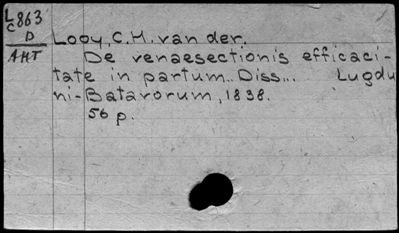 L863
C
D
AHT
Looy, C.H. van der.
De venaesectionis efficaci-
tate in partum.. Diss... Lugdu
ni-Batavorum, 1838.
56 p.